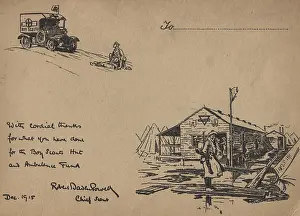 To
BOY SCOUTS
With cordial thanks
for what you have done
for the Boy Scouts Hut
and Ambulance Fund
Robert Baden Powell
Dec. 1915
Chief Scout